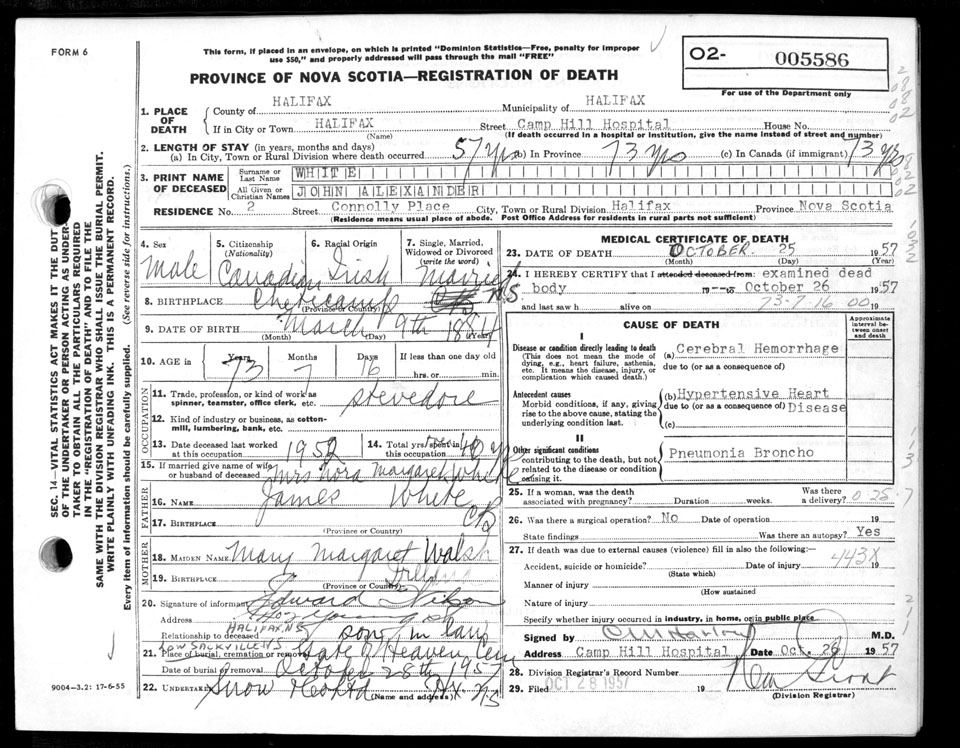 FORM 6
This form, if placed in an envelope, on which is printed "Dominion Statistics—Free, penalty for improper
use $50," and properly addressed will pass through the mail "FREE"
PROVINCE OF NOVA SCOTIA—REGISTRATION OF DEATH
O2- 005586
For use of the Department only
1. PLACE OF DEATH
County of HALIFAX Municipality of HALIFAX
If in City or Town HALIFAX Street Camp Hill Hospital House No.
(Name) (If death occurred in a hospital or institution, give the name instead of street and number)
2. LENGTH OF STAY (in years, months and days)
(a) In City, Town or Rural Division where death occurred 57 yrs (b) In Province 73 yrs (c) In Canada (if immigrant) 73 yrs
3. PRINT NAME OF DECEASED
Surname or Last Name WHITE
All Given or Christian Names JOHN ALEXANDER
RESIDENCE No. 2 Street Connolly Place City, Town or Rural Division Halifax Province Nova Scotia
(Residence means usual place of abode. Post Office Address for residents in rural parts not sufficient)
4. Sex Male
5. Citizenship (Nationality) Canadian
6. Racial Origin Irish
7. Single, Married, Widowed or Divorced (write the word) Married
8. BIRTHPLACE Cheticamp CB N.S
(Province or Country)
9. DATE OF BIRTH March 9th 1884
(Month) (Day) (Year)
10. AGE in Years 73 Months 7 Days 16 If less than one day old
hrs. or min.
OCCUPATION
11. Trade, profession, or kind of work as spinner, teamster, office clerk, etc. stevedore
12. Kind of industry or business, as cotton-mill, lumbering, bank, etc.
13. Date deceased last worked at this occupation 1952
14. Total yrs. spent in this occupation 40 yrs
15. If married give name of wife or husband of deceased Mrs Nora Margaret White
FATHER
16. NAME James White
17. BIRTHPLACE CB
(Province or Country)
MOTHER
18. MAIDEN NAME Mary Margaret Walsh
19. BIRTHPLACE Ireland
(Province or Country)
20. Signature of informant Edward Wilson
Address HALIFAX N S
Relationship to deceased son in law
LOW SACKVILLE N S
21. Place of burial, cremation or removal Gate of Heaven Cem
Date of burial or removal October 28th 1957
22. Undertaker Snow & Co Ltd Hfx N S
(Name and address)
MEDICAL CERTIFICATE OF DEATH
23. DATE OF DEATH OCTOBER 25 1957
(Month) (Day) (Year)
24. I HEREBY CERTIFY that I attended deceased from: examined dead
body October 26 1957
and last saw h alive on 73-7-16 00 19
CAUSE OF DEATH
Approximate interval between onset and death
I
Disease or condition directly leading to death
(This does not mean the mode of dying, e.g., heart failure, asthenia, etc. It means the disease, injury, or complication which caused death.)
(a) Cerebral Hemorrhage
due to (or as a consequence of)
Antecedent causes
Morbid conditions, if any, giving rise to the above cause, stating the underlying condition last.
(b) Hypertensive Heart
due to (or as a consequence of) Disease
(c)
II
Other significant conditions
contributing to the death, but not related to the disease or condition causing it.
Pneumonia Broncho
25. If a woman, was the death associated with pregnancy? Duration weeks. Was there a delivery?
26. Was there a surgical operation? No Date of operation 19
State findings Was there an autopsy? Yes
27. If death was due to external causes (violence) fill in also the following:—
443X
Accident, suicide or homicide? Date of injury 19
(State which)
Manner of injury
(How sustained)
Nature of injury
Specify whether injury occurred in industry, in home, or in public place
Signed by M.D.
Address Camp Hill Hospital Date Oct. 26 1957
28. Division Registrar's Record Number
29. Filed OCT 28 1957 19
(Division Registrar)
SEC. 14—VITAL STATISTICS ACT MAKES IT THE DUTY
OF THE UNDERTAKER OR PERSON ACTING AS UNDER-
TAKER TO OBTAIN ALL THE PARTICULARS REQUIRED
IN THE "REGISTRATION OF DEATH" AND TO FILE THE
SAME WITH THE DIVISION REGISTRAR WHO SHALL ISSUE THE BURIAL PERMIT.
WRITE PLAINLY WITH UNFADING INK. THIS IS A PERMANENT RECORD.
Every item of information should be carefully supplied. (See reverse side for instructions.)
9004—3.2: 17-6-55